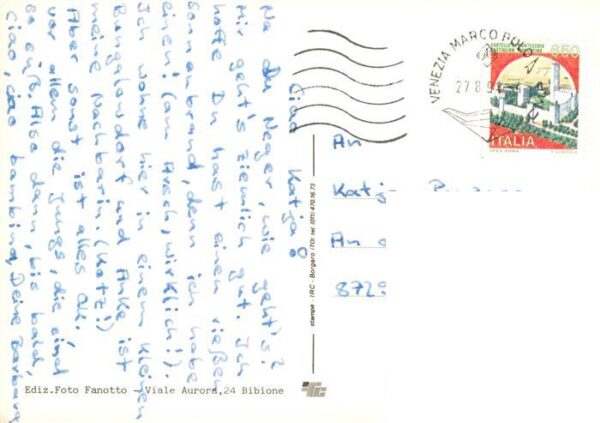 Ciao Katja!
Na du Neger, wie geht's?
Mir geht's ziemlich gut. Ich
hoffe Du hast einen rießen
sonnenbrand, denn ich habe
einen! (am Arsch, wirklich!)
Ich wohne hier in einem kleinen
Bungalowdorf und Anke ist
meine Nachbarin. (Kotz!)
Aber sonst ist alles ok.
vor allem die Jungs, die sind
so süß. Also dann, bis bald,
ciao, ciao bambina, Deine Barbara
Ediz.Foto Fanotto - Viale Aurora,24 Bibione
stampa - IRC - Borgaro (TO) tel. (011) 470.16.73
VENEZIA MARCO POLO
27 8
650
ITALIA
An
Katj
An
8729